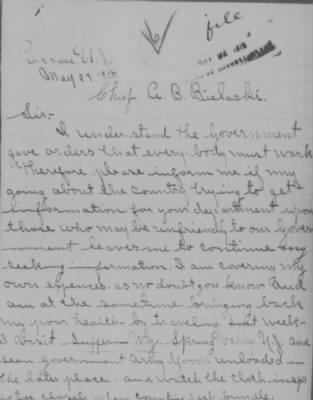 file
MAY 28 1918
Passaic N.J.
May 27. 1918
Chief A. B. Bielaski.
Sir:-
I understand the Government
gave orders that every-body must work
Therefore please inform me if my
going about the country trying to get
information for your department upon
those who may be unfriendly to our Govern
ment leaves me to continue my
seeking information. I am covering my
own expenses. as no doubt you know And
am at the sametime bringing back
my poor health - by traveling Last week-
I visit Suffern N.y. Spring Valley N.J. and
seen government Army Goods unloaded in
the later place - and watch the cloth insp
closely when counting each bundle.